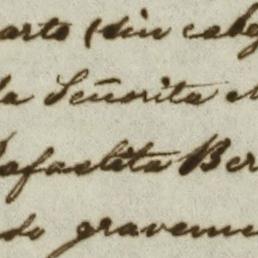 arto (sin cabe
la Señorita
Rafaelita Ber
do graveme